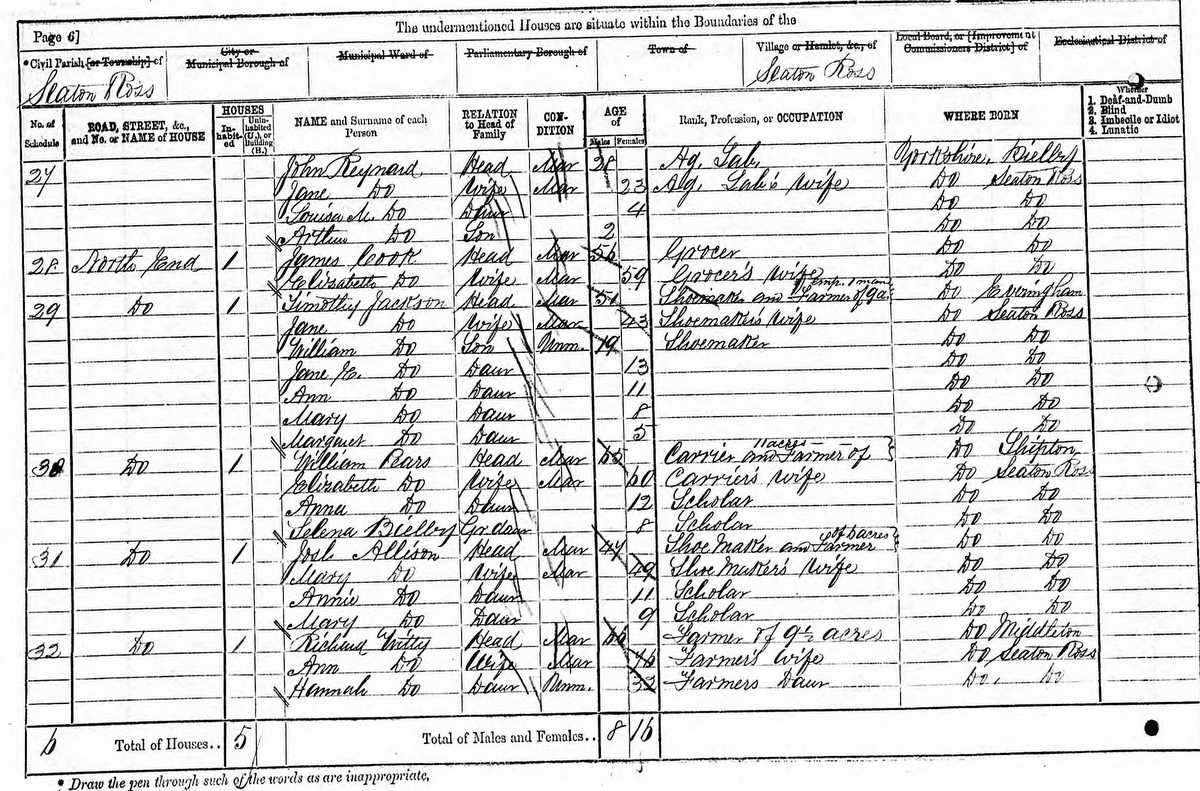 The undermentioned Houses are situate within the Boundaries of the
Page 6]
*Civil Parish [or Township] of
City or Municipal Borough of
Municipal Ward of
Parliamentary Borough of
Town of
Village or Hamlet, &c., of
Local Board, or [Improvement Commissioners District] of
Ecclesiastical District of
Seaton Ross
Seaton Ross
No. of Schedule
ROAD, STREET, &c., and No. or NAME of HOUSE
HOUSES
Inhabited
Uninhabited (U.), or Building (B.)
NAME and Surname of each Person
RELATION to Head of Family
CONDITION
AGE of
Males
Females
Rank, Profession, or OCCUPATION
WHERE BORN
Whether
1. Deaf-and-Dumb
2. Blind
3. Imbecile or Idiot
4. Lunatic
27 John Reynard Head Mar 28 Ag. Lab. Yorkshire, Bielby
Jane Do Wife Mar 23 Ag. Lab's Wife Do Seaton Ross
Louisa M. Do Daur 4 Do Do
Arthur Do Son 2 Do Do
28 North End 1 James Cook Head Mar 56 Grocer Do Do
Elizabeth Do Wife Mar 59 Grocer's Wife Do Do
29 Do 1 Timothy Jackson Head Mar 51 Shoemaker emp. 1 man and Farmer of 9 a. Do Everingham
Jane Do Wife Mar 43 Shoemaker's Wife Do Seaton Ross
William Do Son Unm. 19 Shoemaker Do Do
Jane E. Do Daur 13 Do Do
Ann Do Daur 11 Do Do
Mary Do Daur 8 Do Do
Margaret Do Daur 5 Do Do
30 Do 1 William Rars Head Mar 65 Carrier and Farmer of 11 acres Do Shipton
Elizabeth Do Wife Mar 60 Carrier's Wife Do Seaton Ross
Anna Do Daur 12 Scholar Do Do
Selena Bielby Gr. daur 8 Scholar Do Do
31 Do 1 Josh Allison Head Mar 47 Shoe Maker and Farmer of 6 acres Do Do
Mary Do Wife Mar 49 Shoe Maker's Wife Do Do
Annie Do Daur 11 Scholar Do Do
Mary Do Daur 9 Scholar Do Do
32 Do 1 Richard Witty Head Mar 66 Farmer of 9½ acres Do Middleton
Ann Do Wife Mar 76 Farmer's Wife Do Seaton Ross
Hannah Do Daur Unm. 32 Farmers Daur Do. Do
6 Total of Houses.. 5 Total of Males and Females.. 8 16
* Draw the pen through such of the words as are inappropriate.